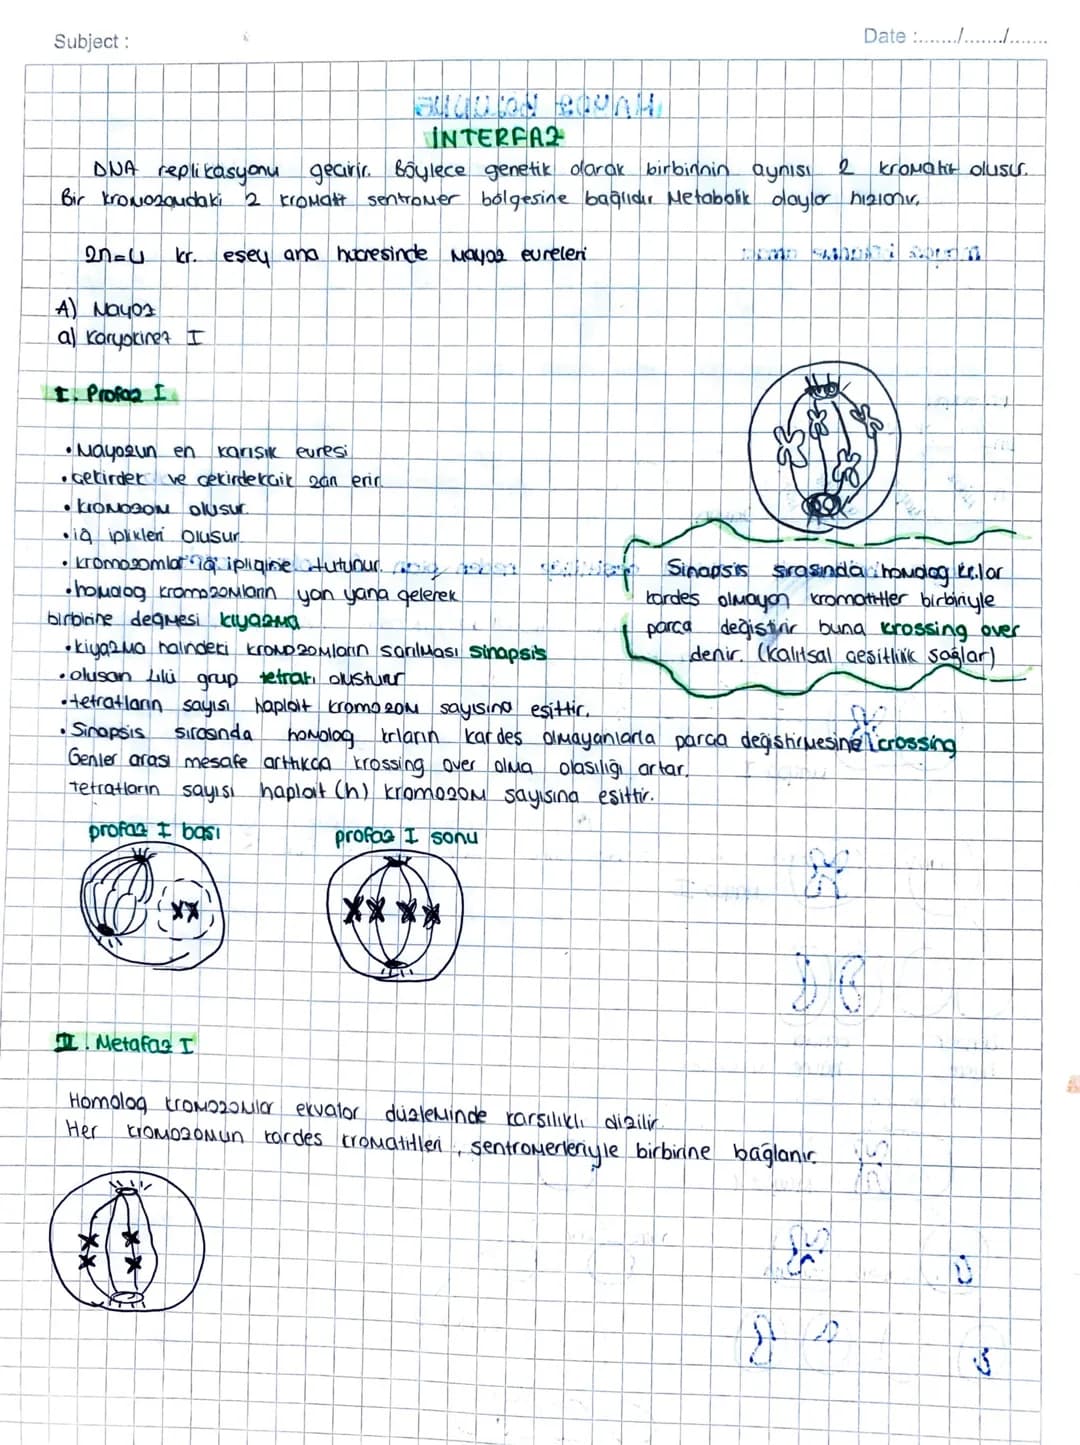 Subject :
Date :......./......./.......
İNTERFAZ
DNA replikasyonu geçirir. Böylece genetik olarak birbirinin aynısı 2 kromatit oluşur.
Bir kromozomdaki 2 kromatit sentromer bölgesine bağlıdır Metabolik olaylar hızlanır.
2n=4 kr. eşey ana hücresinde mayoz evreleri
A) Mayoz
a) Karyokinez I
I. Profaz I
• Mayozun en karışık evresi
• çekirdek ve çekirdekcik zarı erir.
• kromozom oluşur
• iğ iplikleri oluşur
• kromozomlar iğ ipliğine tutunur.
• homolog kromozomların yan yana gelerek
birbirine değmesi kiyazma
• kiyazma halindeki kromozomların sarılması sinapsis
• oluşan 4'lü grup tetratı oluşturur
• tetratların sayısı haploit kromozom sayısına eşittir.
• Sinapsis sırasında homolog kr.ların kardeş olmayanlarla parça değiştirmesine crossing
Genler arası mesafe arttıkça krossing over olma olasılığı artar.
Tetratların sayısı haploit (h) kromozom sayısına eşittir.
Sinapsis sırasında homolog kr.lar
kardeş olmayan kromatitler birbiriyle
parça değiştirir buna krossing over
denir. (Kalıtsal çeşitlilik sağlar)
profaz I başı
profaz I sonu
II. Metafaz I
Homolog kromozomlar ekvator düzleminde karşılıklı dizilir
Her kromozomun kardeş kromatitleri, sentromerleriyle birbirine bağlanır.